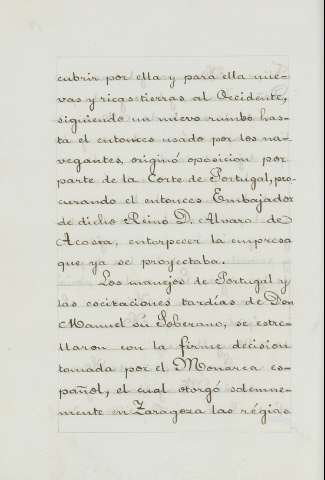 cubrir por ella y para ella nue-
vas y ricas tierras al Occidente,
siguiendo un nuevo rumbo has-
ta el entonces usado por los na-
vegantes, originó oposicion por
parte de la Corte de Portugal, pro-
curando el entonces Embajador
de dicho Reino D. Alvaro de
Acosta, entorpecer la empresa
que ya se proyectaba.
Los manejos de Portugal y
las cocitaciones tardías de Don
Manuel su Soberano, se estre-
llaron con la firme decision
tomada por el Monarca es-
pañol, el cual otorgó solemne-
mente en Zaragoza las régias